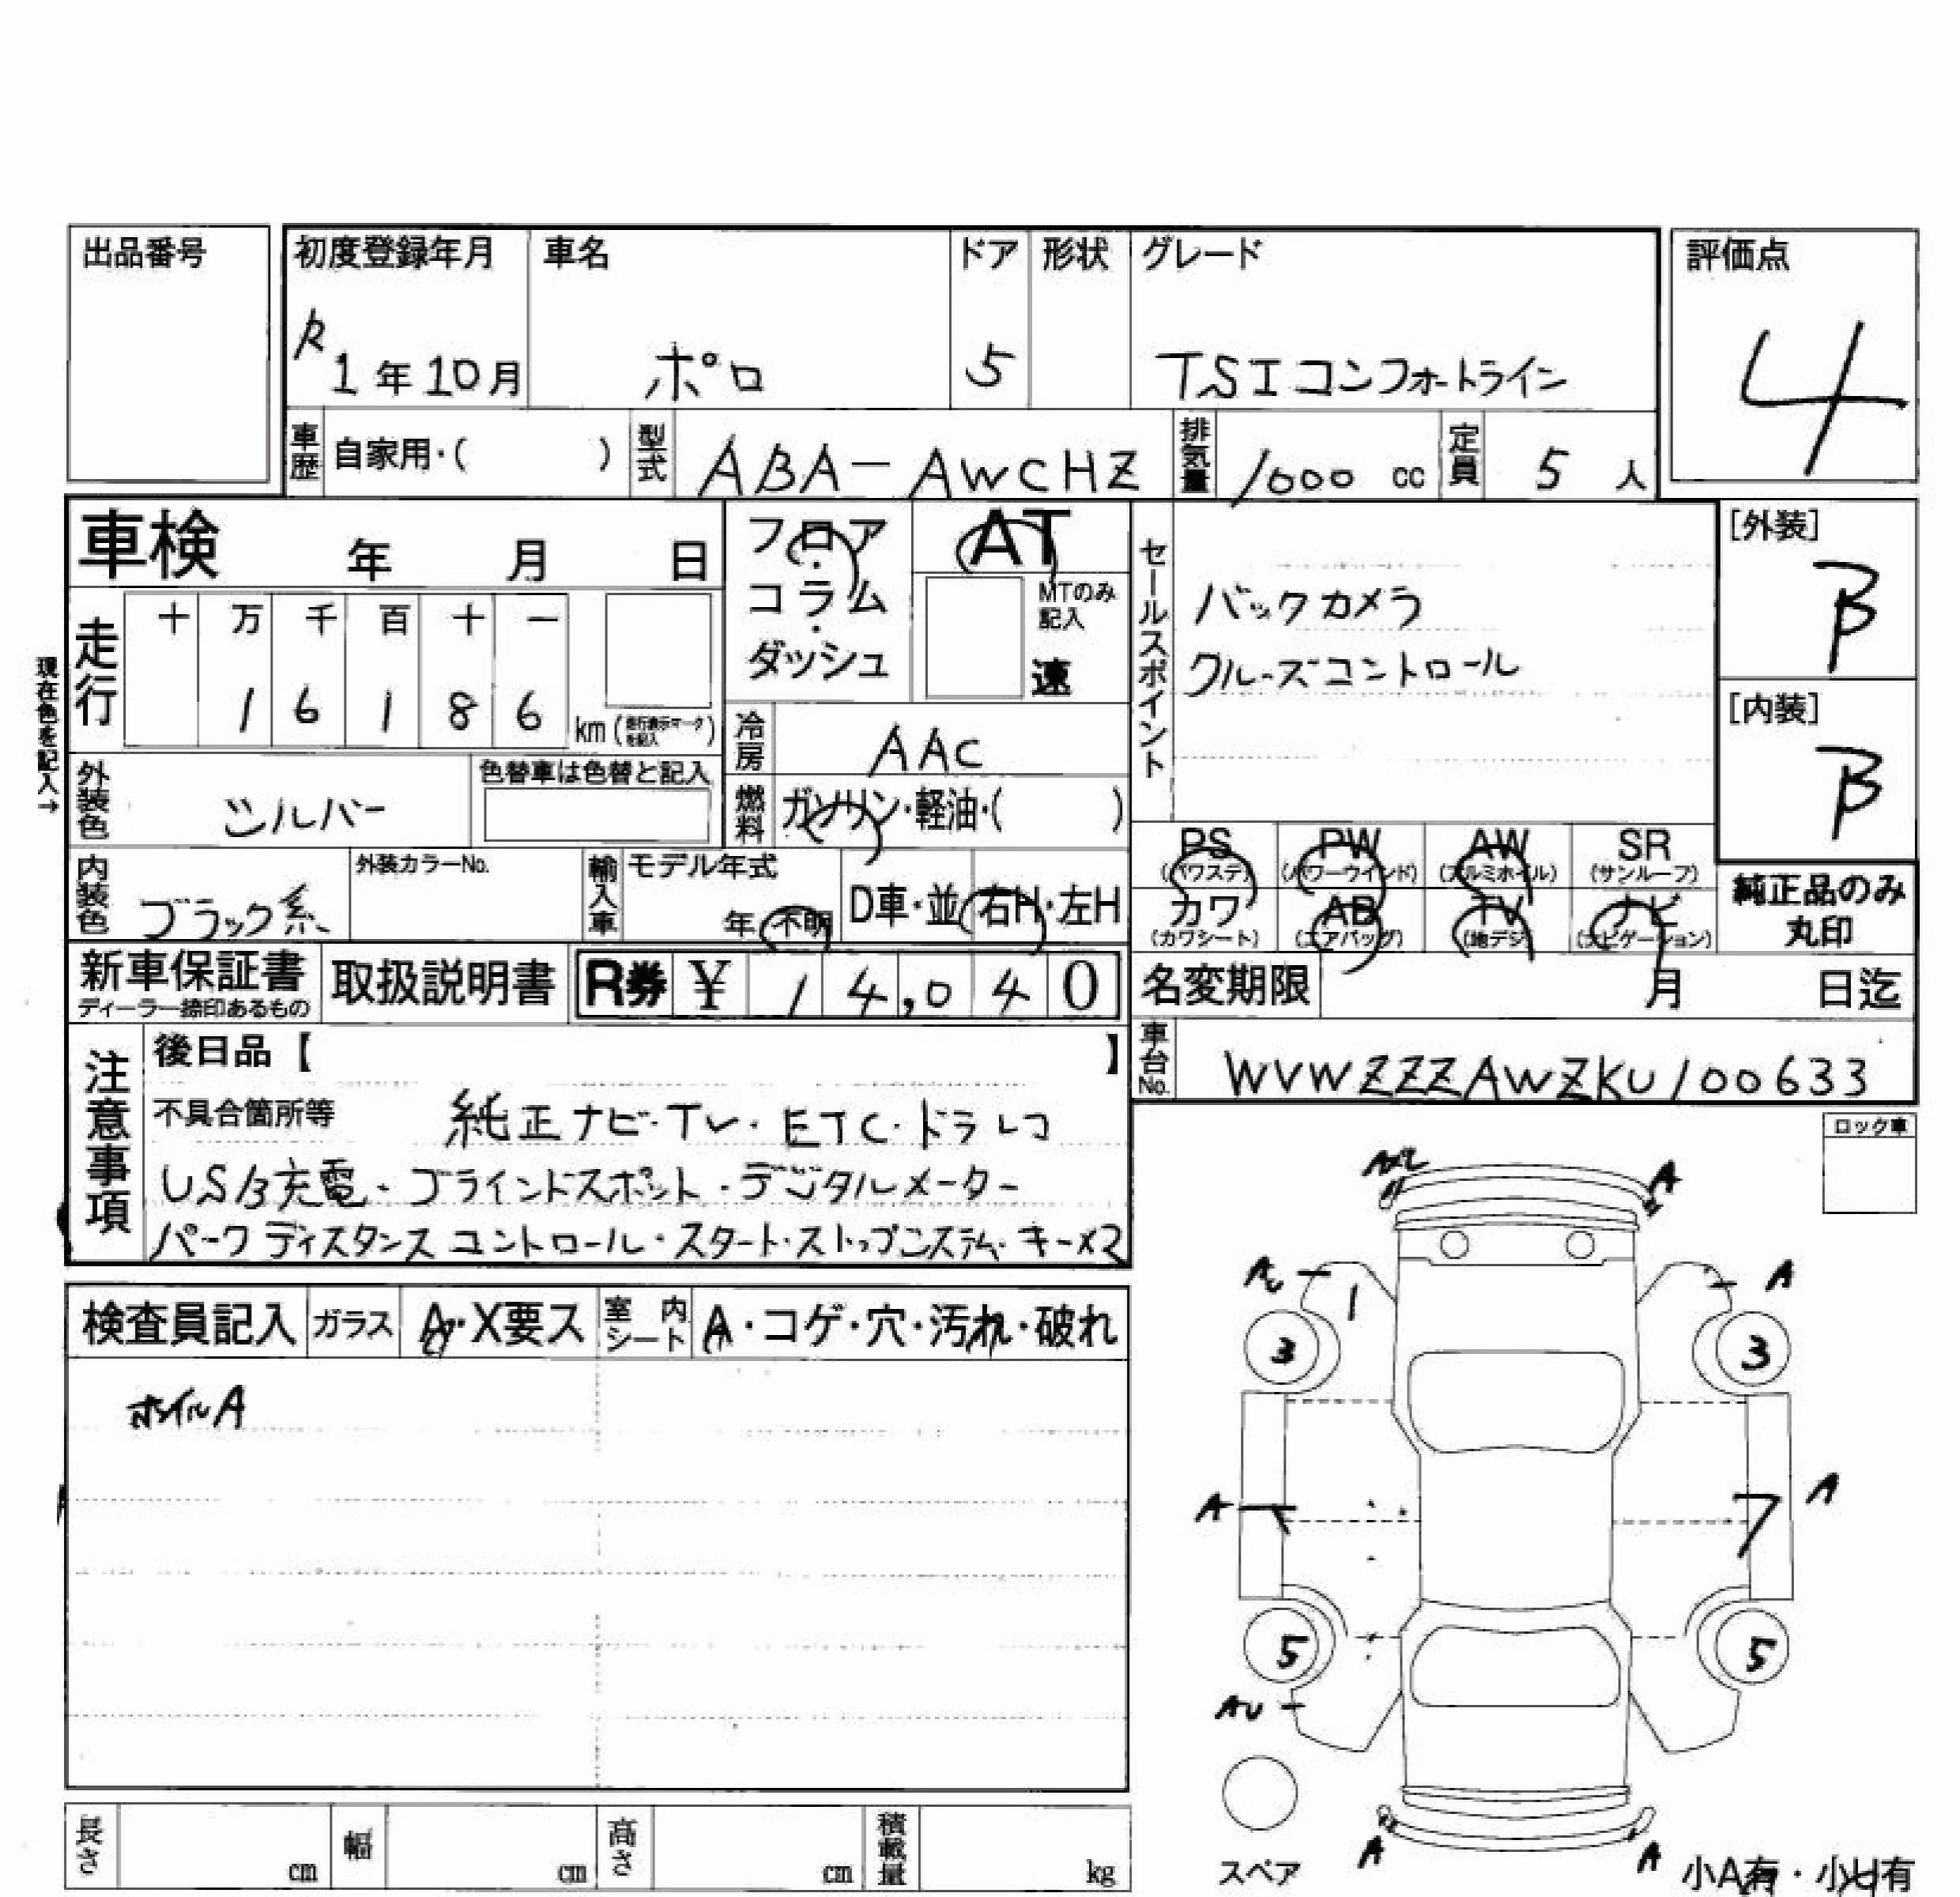 出品番号
初度登録年月 車名 ドア 形状 グレード 評価点
R1年10月 ポロ 5 TSIコンフォートライン 4
車歴 自家用・( ) 型式 ABA-AWCHZ 排気量 1000 cc 定員 5 人
車検 年 月 日
フロア・コラム・ダッシュ
AT
MTのみ記入
速
セールスポイント
バックカメラ
クルーズコントロール
[外装]
B
[内装]
B
現在色を記入→
走行 十 万 千 百 十 一
1 6 1 8 6 km (走行表示マークを記入)
冷房 AAC
外装色 シルバー 色替車は色替と記入
燃料 ガソリン・軽油・( )
内装色 ブラック系 外装カラーNo. 輸入車 モデル年式 年 不明 D車・並 右H・左H
PS PW AW SR
(パワステ) (パワーウインド) (アルミホイル) (サンルーフ)
カワ AB TV ナビ
(カワシート) (エアバッグ) (地デジ) (ナビゲーション)
純正品のみ
丸印
新車保証書
ディーラー捺印あるもの
取扱説明書 R券 ¥ 14,040
名変期限 月 日迄
車台No. WVWZZZAWZKU100633
注意事項
後日品【 】
不具合箇所等 純正ナビ・TV・ETC・ドラレコ
USB充電・ブラインドスポット・デジタルメーター
パークディスタンスコントロール・スタート・ストップシステム・キー×2
ロック車
検査員記入 ガラス A・X要ス 室内シート A・コゲ・穴・汚れ・破れ
ホイルA
A
A A
1
3 3
A A
5 5
AU
スペア
A A
小A有・小U有
長さ cm 幅 cm 高さ cm 積載量 kg